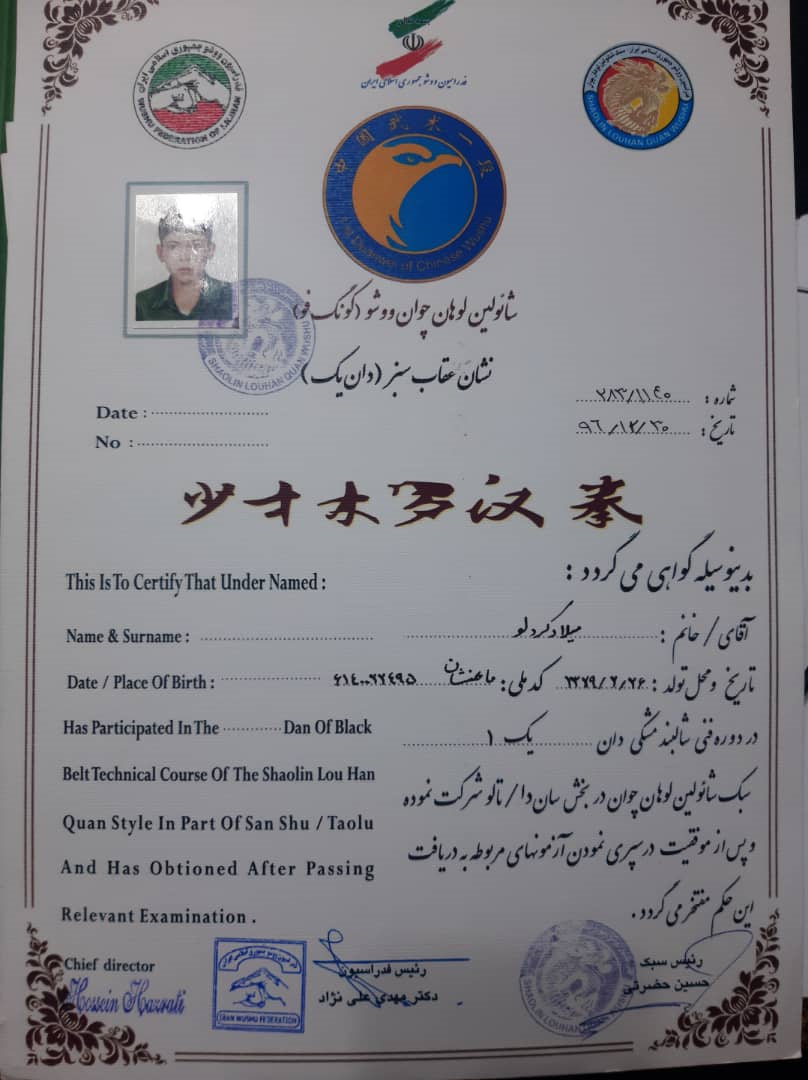 فدراسیون ووشو جمهوری اسلامی ایران
WUSHU FEDERATION OF I.R.IRAN
فدراسیون ووشو جمهوری اسلامی ایران
SHAOLIN LOUHAN QUAN WUSHU
中国武术一段
of Chinese Wushu
شائولین لوهان چوان ووشو (کونگ فو)
SHAOLIN LOUHAN QUAN WUSHU
نشان عقاب سبز (دان یک)
شماره : ۲۸۳/۱۱۴۰
Date :
تاریخ : ۹۶/۱۲/۲۰
No :
少林罗汉拳
بدینوسیله گواهی می گردد :
This Is To Certify That Under Named :
آقای / خانم : میلاد کردلو
Name & Surname :
تاریخ و محل تولد : ۱۳۷۹/۶/۲۶ ماهنشان کد ملی : ۶۱۴۰۰۲۲۴۹۵
Date / Place Of Birth :
در دوره فنی شالبند مشکی دان یک ۱
Has Participated In The Dan Of Black
سبک شائولین لوهان چوان در بخش سان دا / تالو شرکت نموده
Belt Technical Course Of The Shaolin Lou Han
Quan Style In Part Of San Shu / Taolu
و پس از موفقیت در سپری نمودن آزمونهای مربوطه به دریافت
And Has Obtioned After Passing
این حکم مفتخر می گردد .
Relevant Examination .
Chief director
Hossein Hazrati
IRAN WUSHU FEDERATION
رئیس فدراسیون
دکتر مهدی علی نژاد
SHAOLIN LOUHAN QUAN WUSHU
رئیس سبک
حسین حضرتی